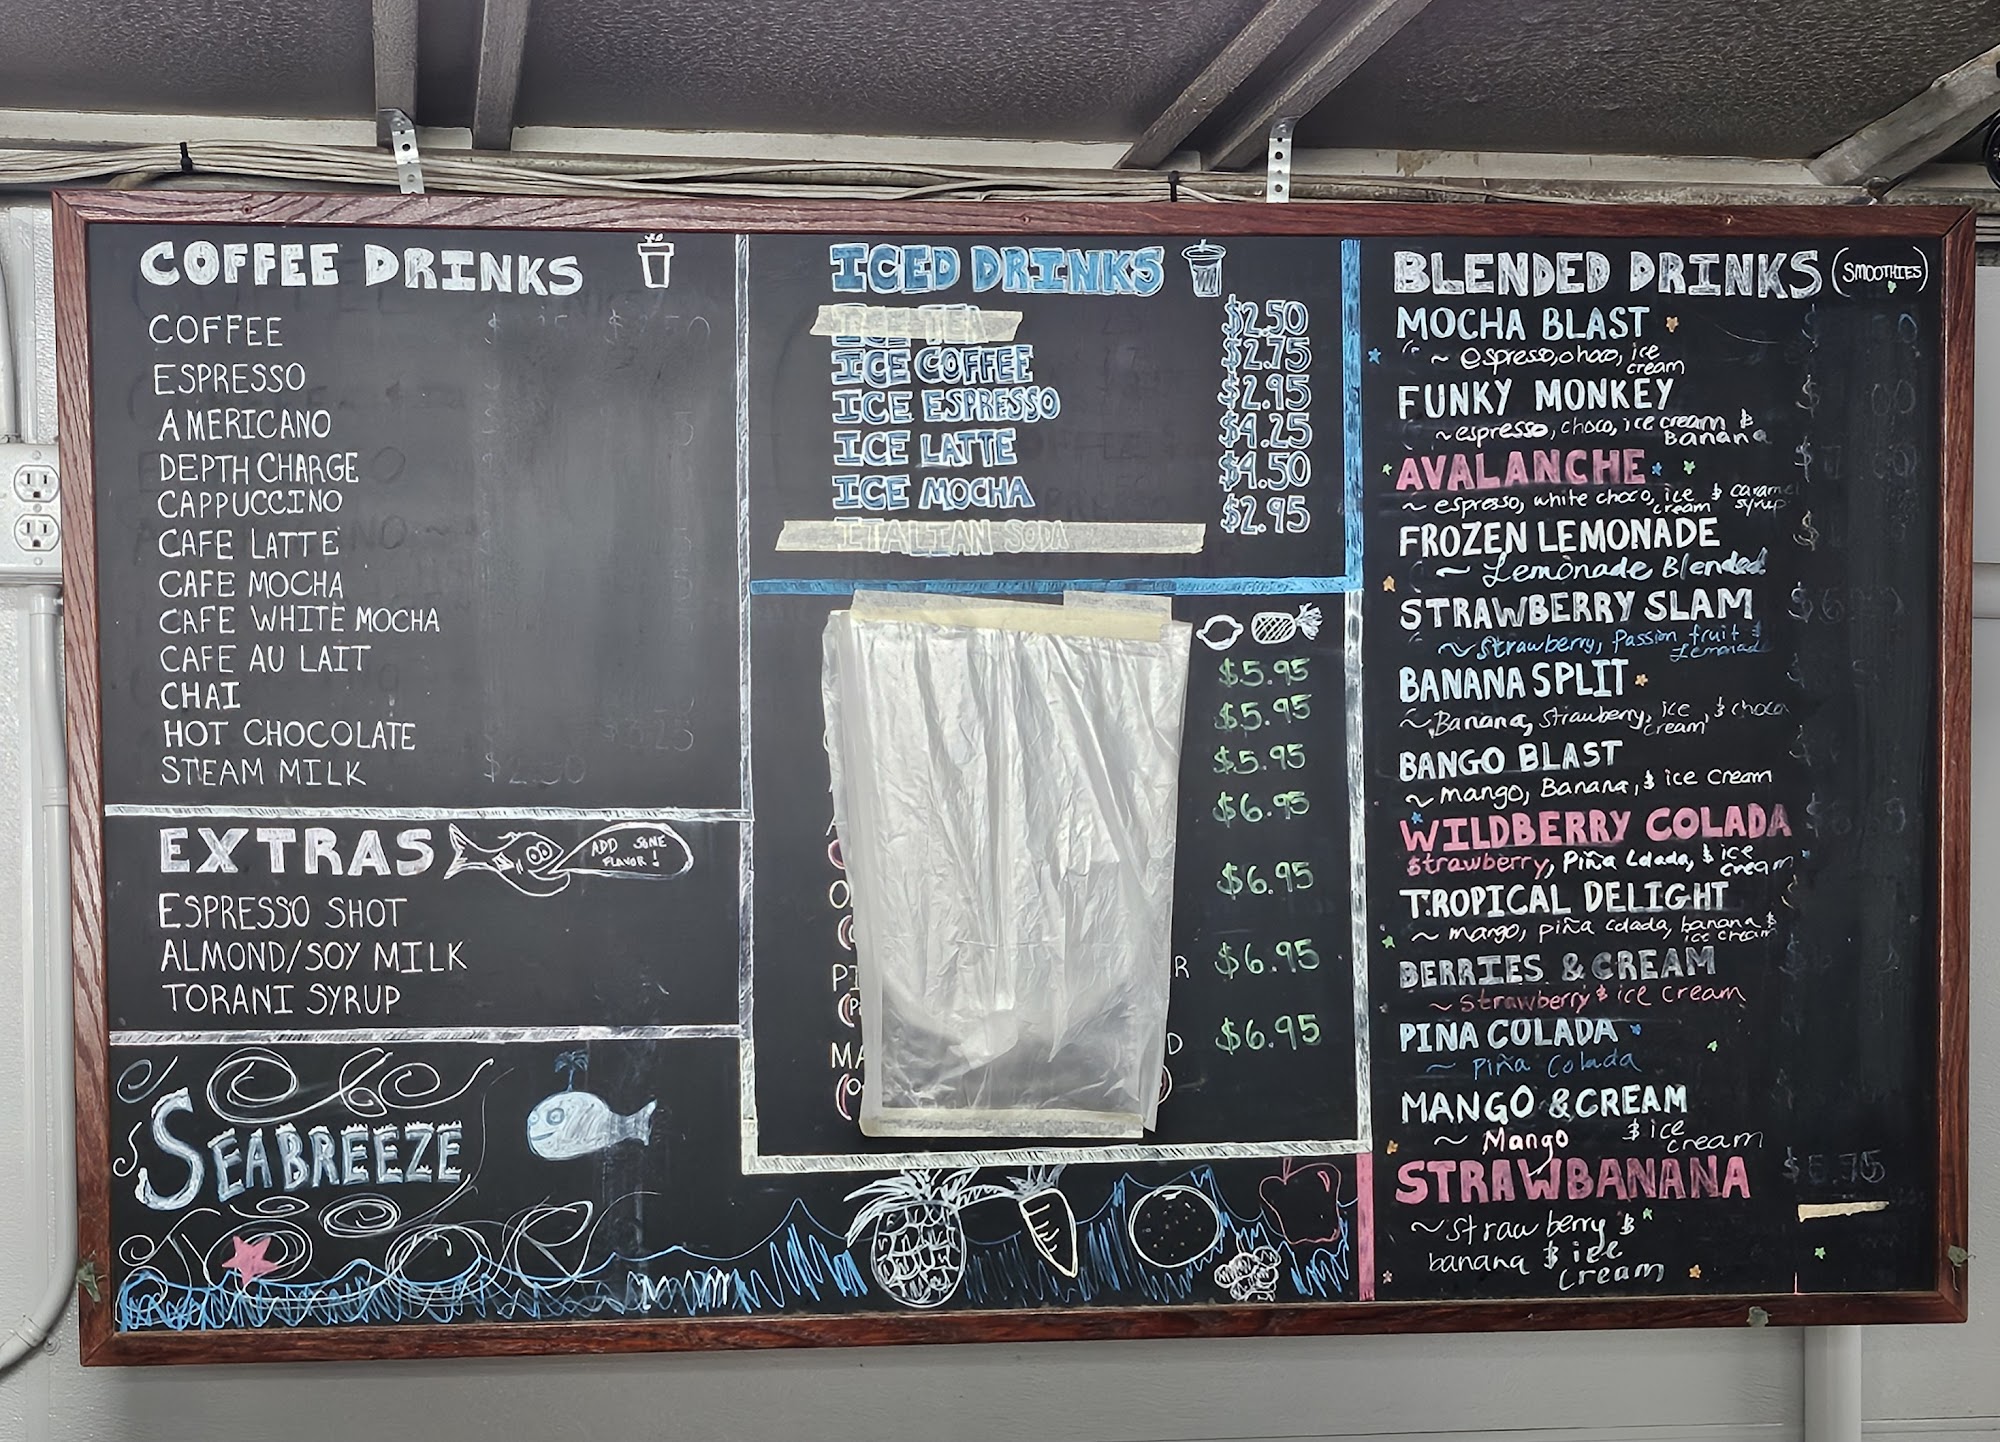 COFFEE DRINKS
COFFEE
ESPRESSO
AMERICANO
DEPTH CHARGE
CAPPUCCINO
CAFE LATTE
CAFE MOCHA
CAFE WHITE MOCHA
CAFE AU LAIT
CHAI
HOT CHOCOLATE
STEAM MILK $2.50
EXTRAS
ADD SOME
FLAVOR!
ESPRESSO SHOT
ALMOND/SOY MILK
TORANI SYRUP
SEABREEZE
ICED DRINKS
ICE TEA $2.50
ICE COFFEE $2.75
ICE ESPRESSO $2.95
ICE LATTE $4.25
ICE MOCHA $4.50
ITALIAN SODA $2.95
$5.95
$5.95
$5.95
$6.95
$6.95
R $6.95
D $6.95
BLENDED DRINKS (SMOOTHIES)
MOCHA BLAST
~ espresso, choco, ice
cream
FUNKY MONKEY
~espresso, choco, ice cream &
Banana
AVALANCHE
~ espresso, white choco, ice & caramel
cream syrup
FROZEN LEMONADE
~ Lemonade Blended
STRAWBERRY SLAM
~ Strawberry, Passion fruit &
Lemonade
BANANA SPLIT
~Banana, Strawberry, ice & choco
cream
BANGO BLAST
~ mango, Banana, & ice cream
WILDBERRY COLADA
Strawberry, Piña Colada, & ice
cream
TROPICAL DELIGHT
~ mango, piña colada, banana &
ice cream
BERRIES & CREAM
~ Strawberry & ice cream
PINA COLADA
~ Piña Colada
MANGO & CREAM
~ Mango & ice
cream
STRAWBANANA
~ Strawberry &
banana & ice
cream